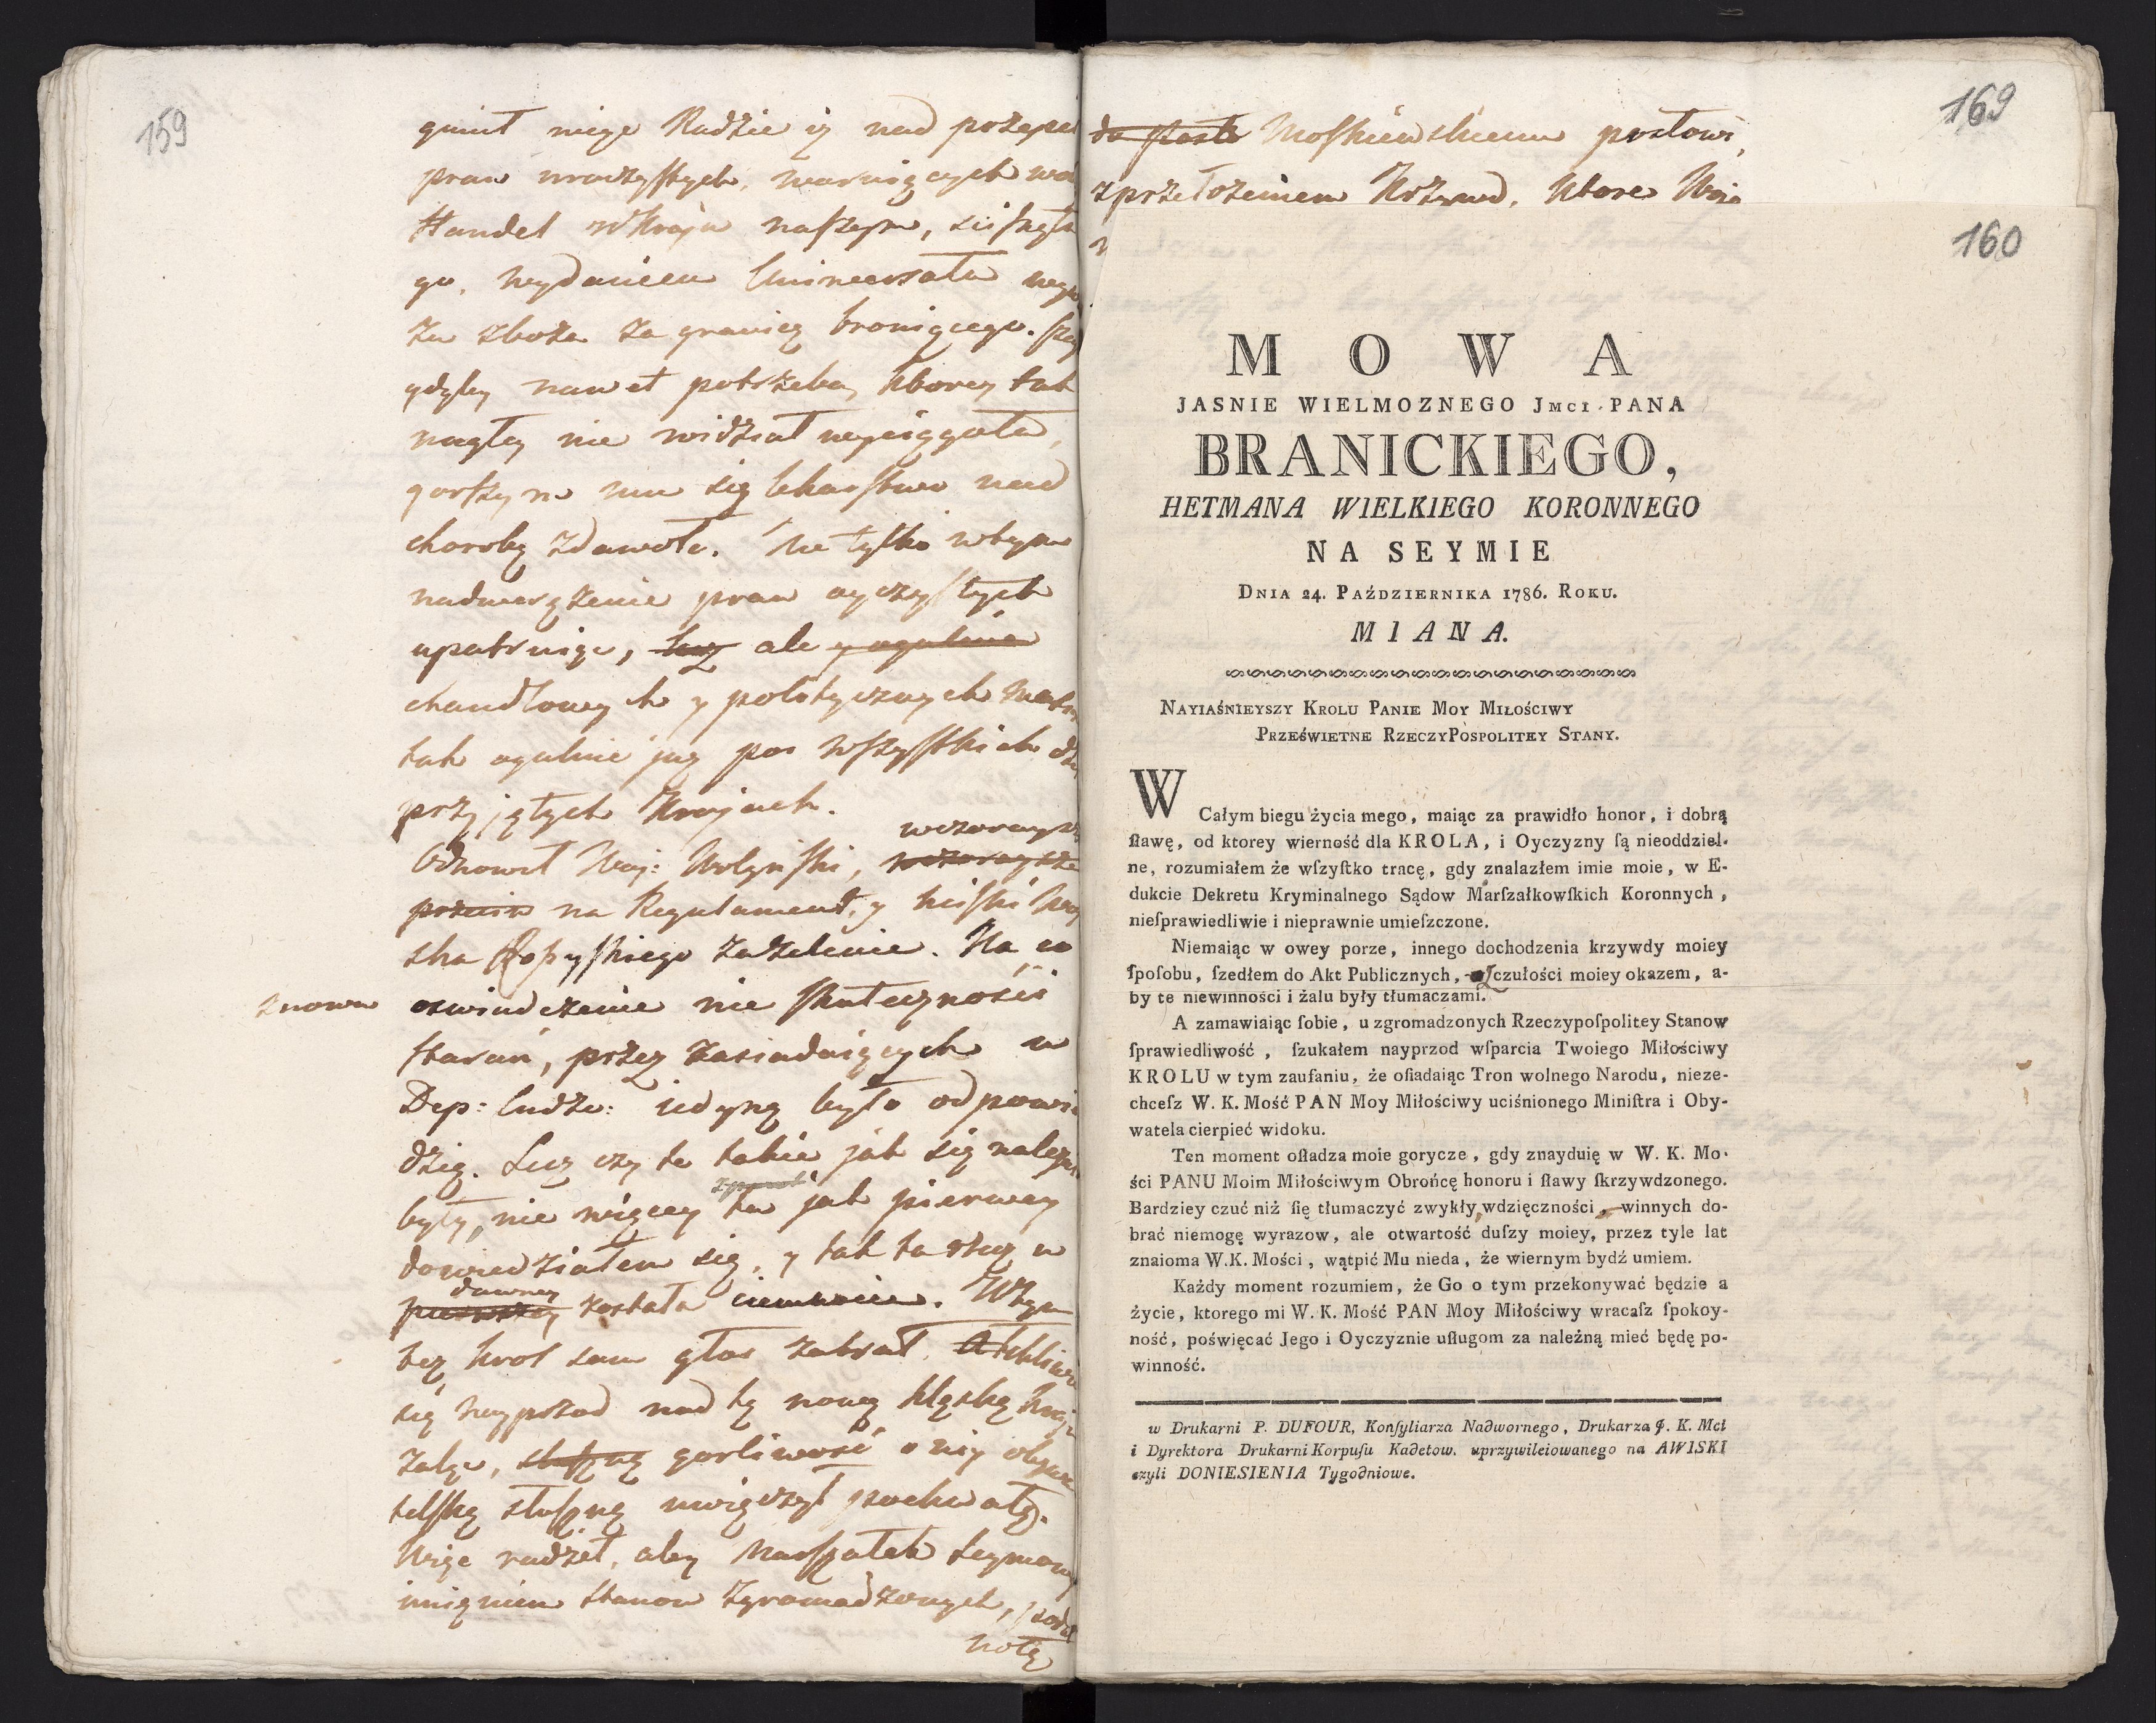 159
gnint nieje Radzie iż nad
praw
Handel w Kraju naſzym, sciſnęła
go, wydaniem Uniwersału
za zboża za granicę broniącego.
gdyby nawet potrzeba, ktorey tak
nagłey nie widział wyciągała,
gorſzym mu się lekarſtwo nad
chorobę zdawało. Nie tylko w tym
nadwerężenie praw oyczyſtych
upatruię, ale
chandlowych y politycznych
tak ogulnie już po wſzyſtkich
przyjętych Krajach.
Odnowił Woj: Wołyńſki,
na Regulament, y
zażalenie. Na co
znowu oswiadczenie nie ſkuteczności
ſtarań, przez zasiadaiących w
Dep: Cudzo: jedyną było odpowie
dzią. Lecz czy te takie jak się należa
były, nie więcey tu jak pierwey
dowiedziałem się, y tak ta rzecz w
dawney
została ciemnocie. W tym
też krol sam głos zabrał,
się nayprzod nad tą nową klęską kraju
żaląc, gorliwość o niy obywa
telſką słuſzną uwięczył pochwałą.
Więc radził, aby Marſzałek Seymowy
imieniem Stanow zgromadzonych, poda
notę
169
Moſkiewskiemu posłowi,
z przełożeniem Krzywd, ktore
160
MOWA
JASNIE WIELMOZNEGO JMCI PANA
BRANICKIEGO,
HETMANA WIELKIEGO KORONNEGO
NA SEYMIE
DNIA 24. PAŹDZIERNIKA 1786. ROKU.
MIANA.
NAYIAŚNIEYSZY KROLU PANIE MOY MIŁOŚCIWY
PRZEŚWIETNE RZECZYPOSPOLITEY STANY.
W Całym biegu życia mego, maiąc za prawidło honor, i dobrą
ſławę, od ktorey wierność dla KROLA, i Oyczyzny ſą nieoddziel-
ne, rozumiałem że wſzyſtko tracę, gdy znalazłem imie moie, w E-
dukcie Dekretu Kryminalnego Sądow Marſzałkowſkich Koronnych,
nieſprawiedliwie i nieprawnie umieſzczone.
Niemaiąc w owey porze, innego dochodzenia krzywdy moiey
ſpoſobu, ſzedłem do Akt Publicznych, z czułości moiey okazem, a-
by te niewinności i żalu były tłumaczami.
A zamawiaiąc ſobie, u zgromadzonych Rzeczypoſpolitey Stanow
ſprawiedliwość, ſzukałem nayprzod wſparcia Twoiego Miłościwy
KROLU w tym zaufaniu, że oſiadaiąc Tron wolnego Narodu, nieze-
chceſz W. K. Mość PAN Moy Miłościwy uciśnionego Miniſtra i Oby-
watela cierpieć widoku.
Ten moment oſładza moie gorycze, gdy znayduię w W. K. Mo-
ści PANU Moim Miłościwym Obrońcę honoru i ſławy ſkrzywdzonego.
Bardziey czuć niż ſię tłumaczyć zwykły, wdzięczności winnych do-
brać niemogę wyrazow, ale otwartość duſzy moiey, przez tyle lat
znaioma W.K. Mości, wątpić Mu nieda, że wiernym bydź umiem.
Każdy moment rozumiem, że Go o tym przekonywać będzie a
życie, ktorego mi W. K. Mość PAN Moy Miłościwy wracaſz ſpokoy-
ność, poświęcać Jego i Oyczyznie uſługom za należną mieć będę po-
winność.
w Drukarni P. DUFOUR, Konſyliarza Nadwornego, Drukarza J. K. Mci
i Dyrektora Drukarni Korpuſu Kadetow. uprzywileiowanego na AWISKI
czyli DONIESIENIA Tygodniowe.